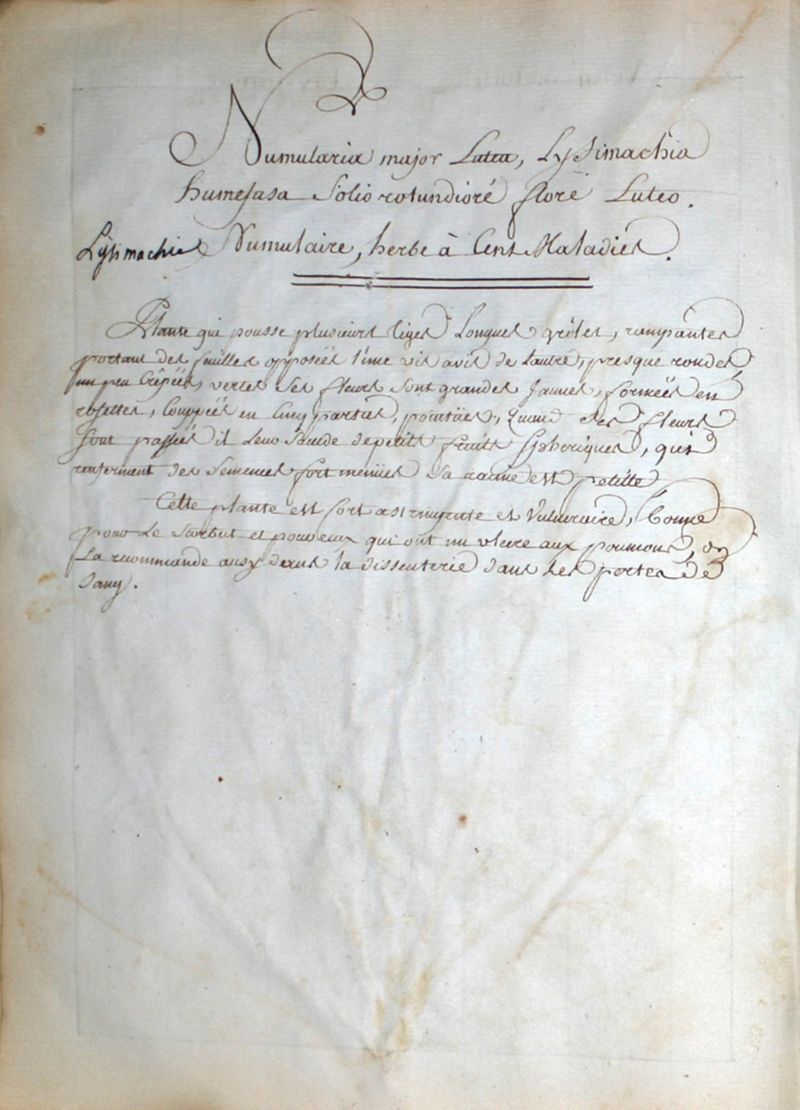 Numularia major Lutea, Lysimachia
humefusa Folio rotundioré floré Luteo.
Lysimachie Numulaire, herbe à Cent Maladies.
Plante qui pousse plusieurs tiges Longues grêles, rampantes
portant des feuilles opposées l'une vis avis de l'autre, presque rondes,
un peu Crêpées, vertes Ses fleurs sont grandes Jaunes, formées en
rosettes, Couppées en Cinq parties, pointües, Quand Ses fleurs
Sont passées il Leur Sucede de petits fruits Spheriques, qui
renferment des Semences fort menües Sa racine est petitte
Cette plante est fort astringente et Vulneraire, bonne
pour Le Scorbut et pour ceux qui ont un ulcere aux poumons, on
La recommande ausy dans la dissenterie dans les pertes de
Sang.